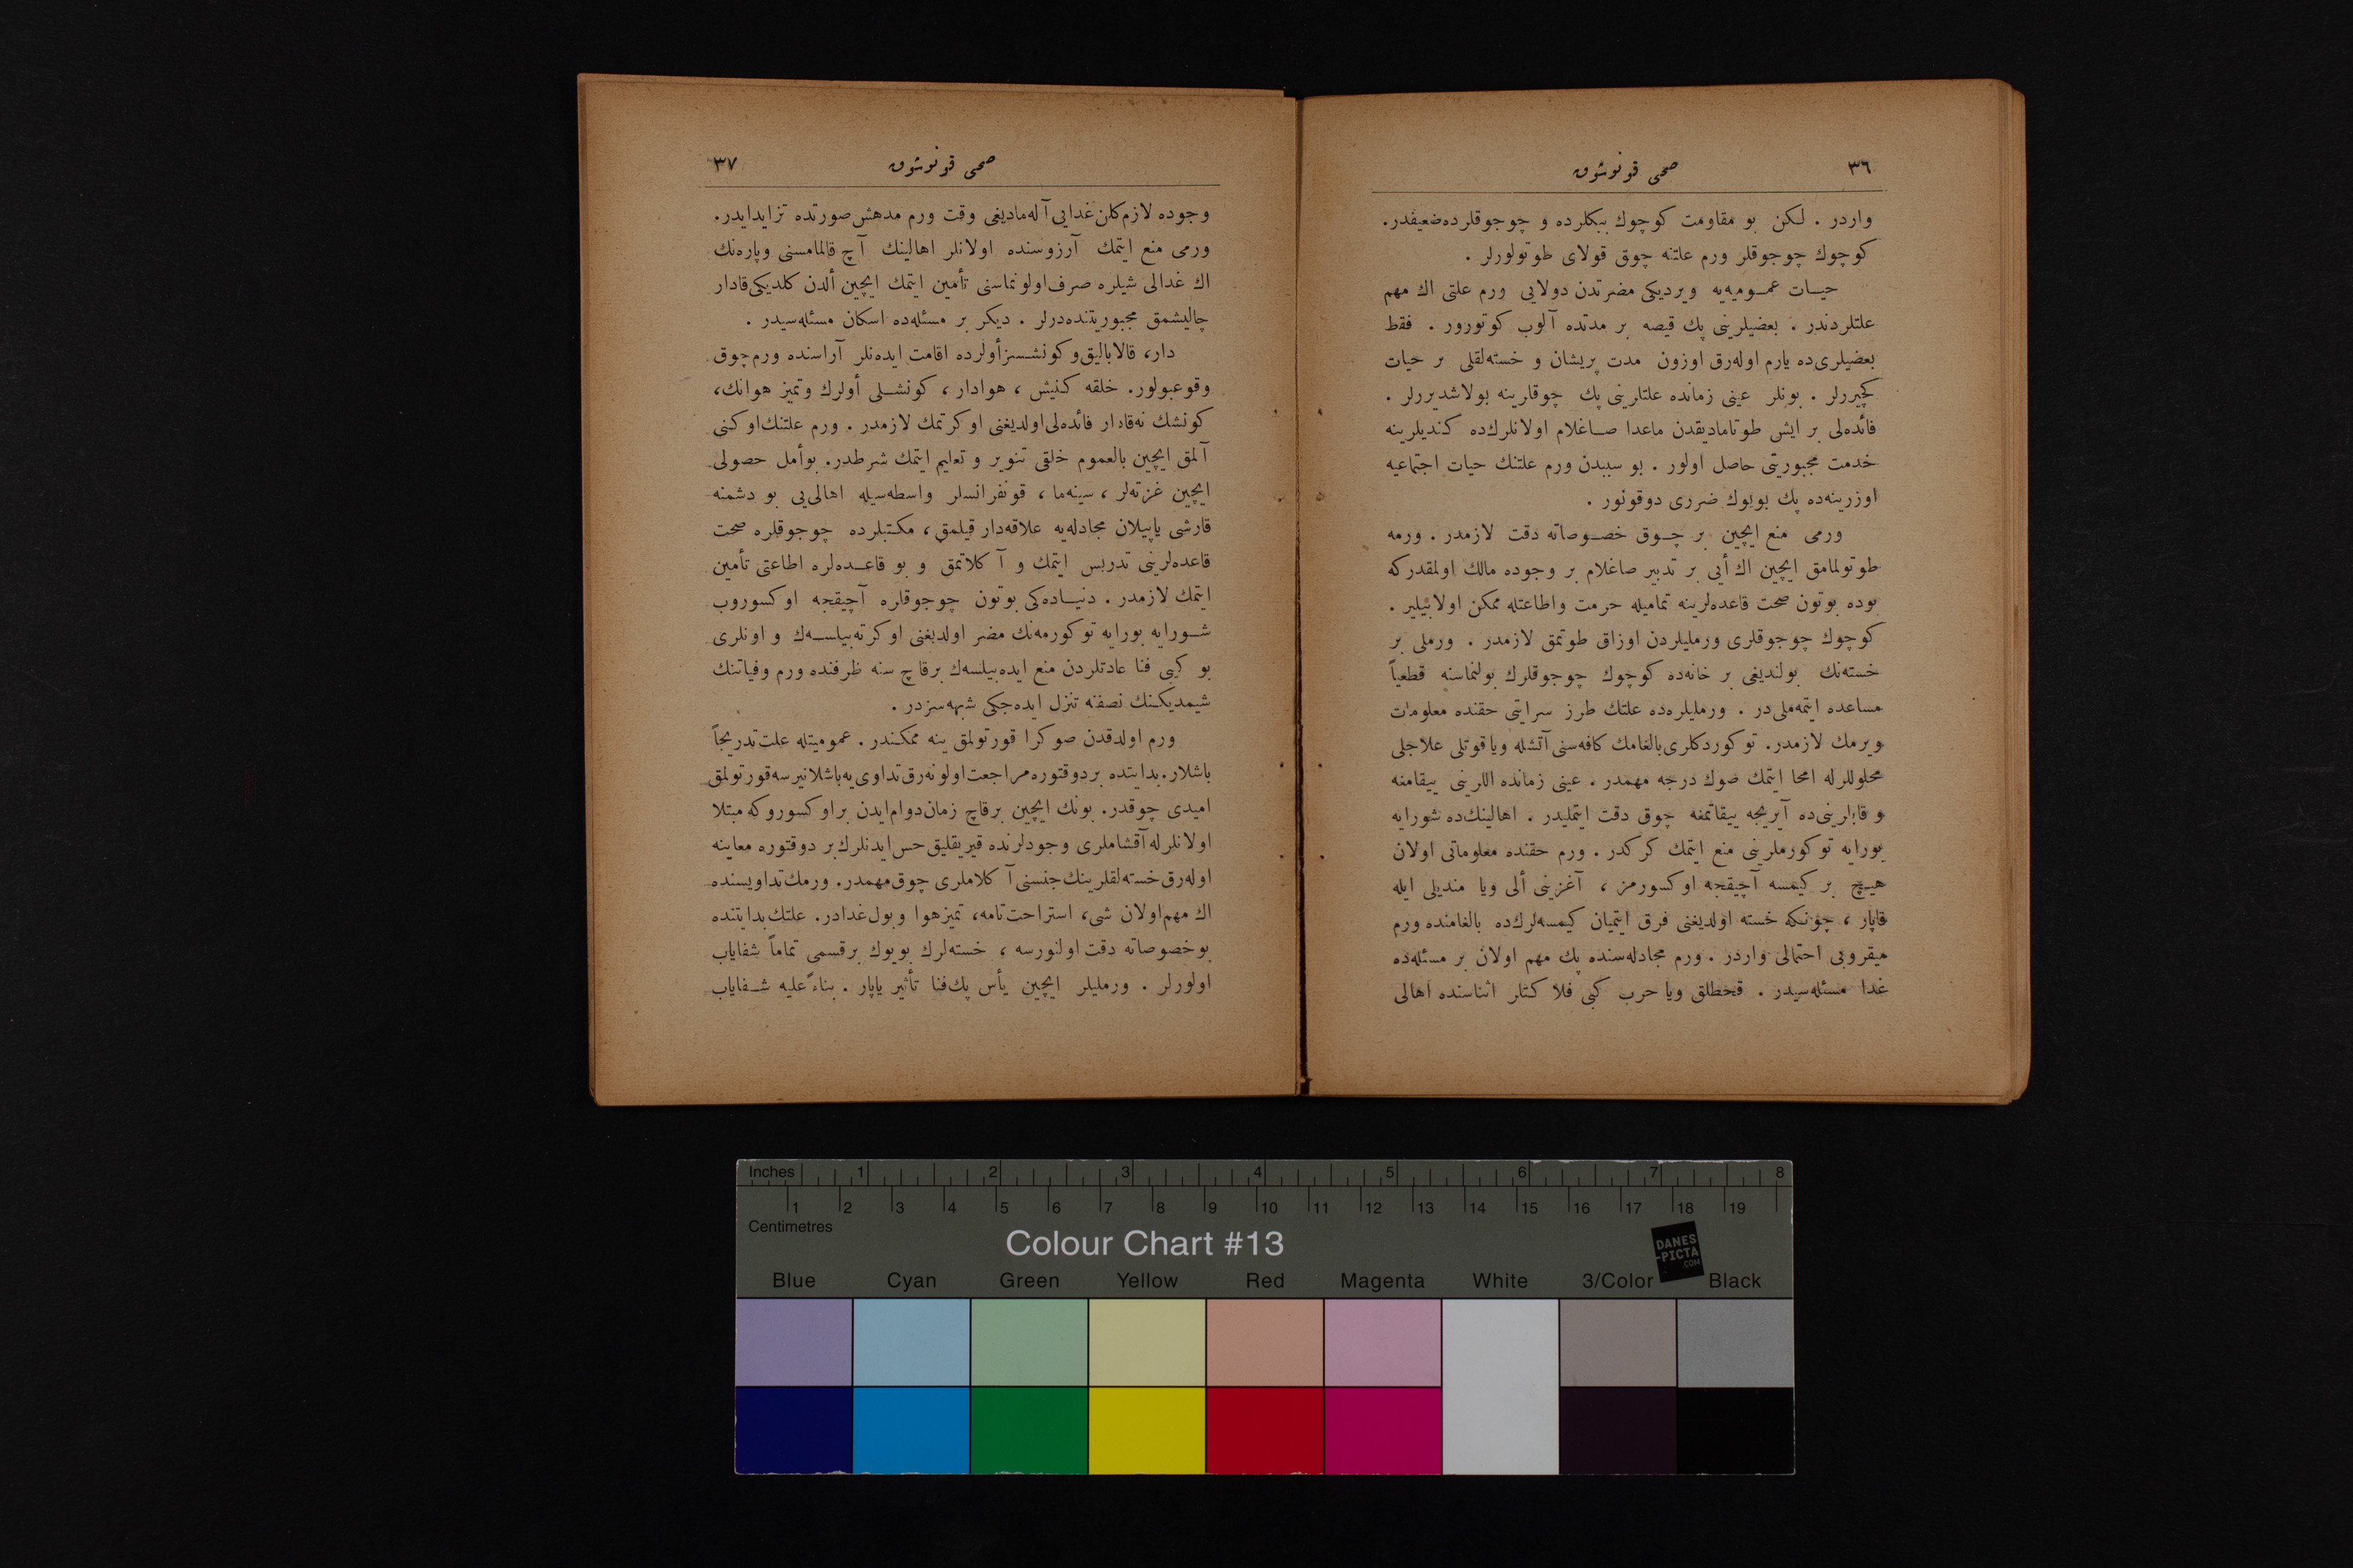 صحی قونوشوق
٣٦
واردر . لكن بو مقاومت كوچوك ببكلرده و چوجوقلرده ضعيفدر.
كوچوك چوجوقلر ورم علتنه چوق قولای طوتولورلر .
حيات عموميه‌يه ويرديكی مضرتدن دولايی ورم علتی اك مهم
علتلردندر . بعضيلرينی پك قيصه بر مدتده آلوب كوتورور . فقط
بعضيلری‌ده يارم اوله‌رق اوزون مدت پريشان و خسته‌لقلی بر حيات
كچيررلر . بونلر عينی زمانده علتلرينی پك چوقلرينه بولاشديررلر .
فائده‌لی بر ايش طوتاماديقدن ماعدا صاغلام اولانلرك‌ده كنديلرينه
خدمت مجبوريتی حاصل اولور . بو سببدن ورم علتنك حيات اجتماعيه
اوزرينه‌ده پك بويوك ضرری دوقونور .
ورمی منع ايچين بر چوق خصوصاته دقت لازمدر . ورمه
طوتولمامق ايچين اك أيی بر تدبير صاغلام بر وجوده مالك اولمقدركه
بوده بوتون صحت قاعده‌لرينه تماميله حرمت واطاعتله ممكن اولابيلير .
كوچوك چوجوقلری ورمليلردن اوزاق طوتمق لازمدر . ورملی بر
خسته‌نك بولنديغی بر خانه‌ده كوچوك چوجوقلرك بولنماسنه قطعياً
مساعده ايتمه‌ملی‌در . ورمليلره‌ده علتك طرز سرايتی حقنده معلومات
ويرمك لازمدر. توكوردكلری بالغامك كافه‌سنی آتشله ويا قوتلی علاجلی
محلوللرله امحا ايتمك صوك درجه مهمدر . عينی زمانده اللرينی ييقامنه
و قابلرينی‌ده آيريجه ييقاتمغه چوق دقت ايتمليدر . اهالينك‌ده شورايه
بورايه توكورملرينی منع ايتمك كركدر . ورم حقنده معلوماتی اولان
هيچ بر كيمسه آچيقجه اوكسورمز ، آغزينی ألی ويا منديلی ايله
قاپار ، چونكه خسته اولديغنی فرق ايتميان كيمسه‌لرك‌ده بالغامنده ورم
ميقروبی احتمالی واردر . ورم مجادله‌سنده پك مهم اولان بر مسئله‌ده
غدا مسئله‌سيدر . قحطلق ويا حرب كبی فلاكتلر اثناسنده اهالی
صحی قونوشوق
٣٧
وجوده لازم كلن غدايی آله‌ماديغی وقت ورم مدهش صورتده تزايد ايدر.
ورمی منع ايتمك آرزوسنده اولانلر اهالينك آچ قالمامسنی وپاره‌نك
اك غدالی شيلره صرف اولونماسنی تأمين ايتمك ايچين ألدن كلديكی قادار
چاليشمق مجبوريتنده‌درلر . ديكر بر مسئله‌ده اسكان مسئله‌سيدر .
دار، قالاباليق و كونشسز أولرده اقامت ايده‌نلر آراسنده ورم چوق
وقوعبولور. خلقه كنيش ، هوادار ، كونشلی أولرك وتميز هوانك،
كونشك نه‌قادار فائده‌لی اولديغنی اوكرتمك لازمدر . ورم علتنك اوكنی
آلمق ايچين بالعموم خلقی تنوير و تعليم ايتمك شرطدر. بو أمل حصولی
ايچين غزته‌لر ، سينه‌ما ، قونفرانسلر واسطه‌سيله اهالی‌يی بو دشمنه
قارشی ياپيلان مجادله‌يه علاقه‌دار قيلمق ، مكتبلرده چوجوقلره صحت
قاعده‌لرينی تدريس ايتمك و آكلاتمق و بو قاعده‌لره اطاعتی تأمين
ايتمك لازمدر . دنياده‌كی بوتون چوجوقلره آچيقجه اوكسوروب
شورايه بورايه توكورمه‌نك مضر اولديغنی اوكرته‌بيلسه‌ك و اونلری
بو كبی فنا عادتلردن منع ايده‌بيلسه‌ك برقاچ سنه ظرفنده ورم وفياتنك
شيمديكينك نصفنه تنزل ايده‌جكی شبهه‌سزدر .
ورم اولدقدن صوكرا قورتولمق ينه ممكندر . عموميتله علت تدريجاً
باشلار. بدايتده بر دوقتوره مراجعت اولونه‌رق تداوی‌يه باشلانيرسه قورتولمق
اميدی چوقدر. بونك ايچين برقاچ زمان دوام ايدن بر اوكسوروكه مبتلا
اولانلرله آقشاملری وجودلرنده قيريقليق حس ايدنلرك بر دوقتوره معاينه
اوله‌رق خسته‌لقلرينك جنسنی آكلاملری چوق مهمدر. ورمك تداويسنده
اك مهم اولان شی، استراحت تامه، تميز هوا و بول غدادر. علتك بدايتنده
بو خصوصاته دقت اولنورسه ، خسته‌لرك بويوك بر قسمی تماماً شفاياب
اولورلر . ورمليلر ايچين يأس پك فنا تأثير ياپار . بناءً عليه شفاياب
Inches 1 2 3 4 5 6 7 8
1 2 3 4 5 6 7 8 9 10 11 12 13 14 15 16 17 18 19
Centimetres
Colour Chart #13
DANES
-PICTA
.COM
Blue Cyan Green Yellow Red Magenta White 3/Color Black